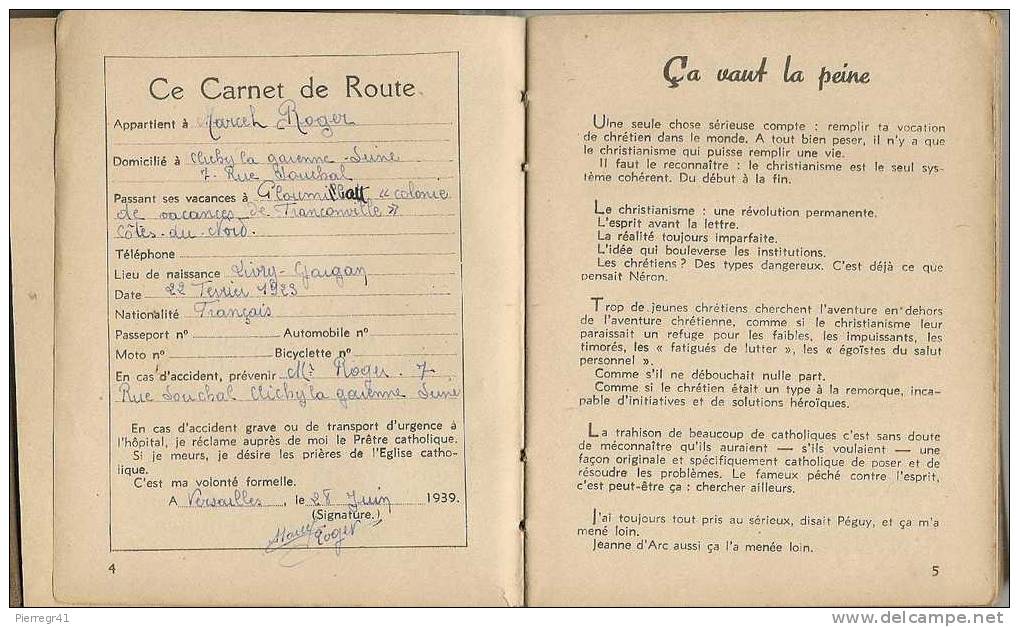 Ce Carnet de Route
Appartient à Marcel Roger
Domicilié à Clichy la garenne - Seine
7. Rue Souchal
Passant ses vacances à « colonie
de vacances de Franconville »
Côtes-du-Nord.
Téléphone
Lieu de naissance Livry-Gargan
Date 22 Février 1923
Nationalité Français
Passeport nº Automobile nº
Moto nº Bicyclette nº
En cas d'accident, prévenir Mr Roger. 7
Rue Souchal Clichy la garenne Seine
En cas d'accident grave ou de transport d'urgence à
l'hôpital, je réclame auprès de moi le Prêtre catholique.
Si je meurs, je désire les prières de l'Eglise catho-
lique.
C'est ma volonté formelle.
A Versailles, le 28 Juin 1939.
(Signature.)
Marcel
Roger
4
Ça vaut la peine
Une seule chose sérieuse compte : remplir ta vocation
de chrétien dans le monde. A tout bien peser, il n'y a que
le christianisme qui puisse remplir une vie.
Il faut le reconnaître : le christianisme est le seul sys-
tème cohérent. Du début à la fin.
Le christianisme : une révolution permanente.
L'esprit avant la lettre.
La réalité toujours imparfaite.
L'idée qui bouleverse les institutions.
Les chrétiens ? Des types dangereux. C'est déjà ce que
pensait Néron.
Trop de jeunes chrétiens cherchent l'aventure en dehors
de l'aventure chrétienne, comme si le christianisme leur
paraissait un refuge pour les faibles, les impuissants, les
timorés, les « fatigués de lutter », les « égoïstes du salut
personnel ».
Comme s'il ne débouchait nulle part.
Comme si le chrétien était un type à la remorque, inca-
pable d'initiatives et de solutions héroïques.
La trahison de beaucoup de catholiques c'est sans doute
de méconnaître qu'ils auraient — s'ils voulaient — une
façon originale et spécifiquement catholique de poser et de
résoudre les problèmes. Le fameux péché contre l'esprit,
c'est peut-être ça : chercher ailleurs.
J'ai toujours tout pris au sérieux, disait Péguy, et ça m'a
mené loin.
Jeanne d'Arc aussi ça l'a menée loin.
5
Pierregr41
delcampe.net